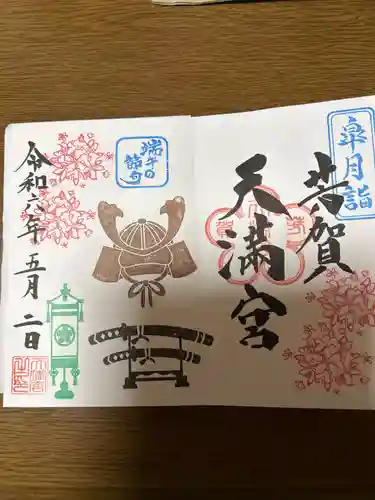 皐月詣
芳賀
天満宮
端午の
節句
令和六年五月二日